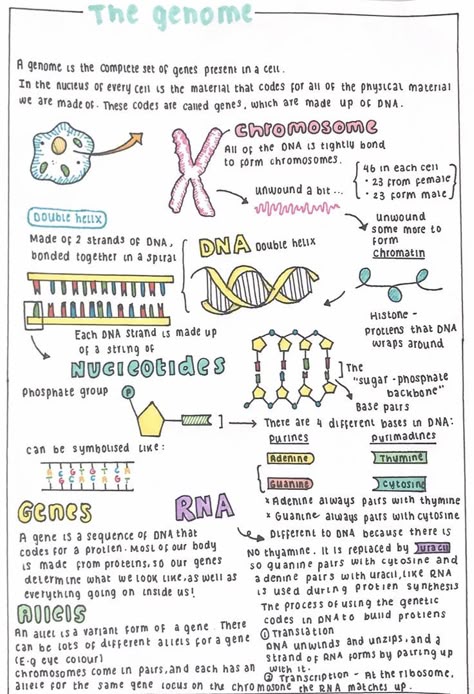 The genome
A genome is the complete set of genes present in a cell.
In the nucleus of every cell is the material that codes for all of the physical material
we are made of. These codes are called genes, which are made up of DNA.
Chromosome
All of the DNA is tightly bond
to form chromosomes.
46 in each cell
• 23 from female
• 23 form male
unwound a bit...
Unwound
some more to
form
chromatin
Double helix
Made of 2 strands of DNA,
bonded together in a spiral
DNA Double helix
Histone -
Protiens that DNA
wraps around
Each DNA strand is made up
of a string of
Nucleotides
The
"sugar-phosphate
backbone"
Base pairs
Phosphate group
P
There are 4 different bases in DNA:
Purines
Purimadines
Adenine
Thymine
Guanine
Cytosine
can be symbolised like:
* Adenine always pairs with thymine
* Guanine always pairs with cytosine
Genes
A gene is a sequence of DNA that
codes for a protien. Most of our body
is made from proteins, so our genes
determine what we look like, as well as
everything going on inside us!
RNA
Different to DNA because there is
No thyamine. It is replaced by uracil
so guanine pairs with cytosine and
adenine pairs with uracil, like RNA
is used during protien synthesis
The process of using the genetic
codes in DNA to build protiens
① Translation
DNA unwinds and unzips, and a
strand of RNA forms by pairing up
with it.
② Transcription - At the ribosome,
the RNA matches up.
Allels
An allel is a variant form of a gene. There
can be lots of different allels for a gene
(E-g eye colour)
chromosomes come in pairs, and each has an
allele for the same gene locus on the chromosome